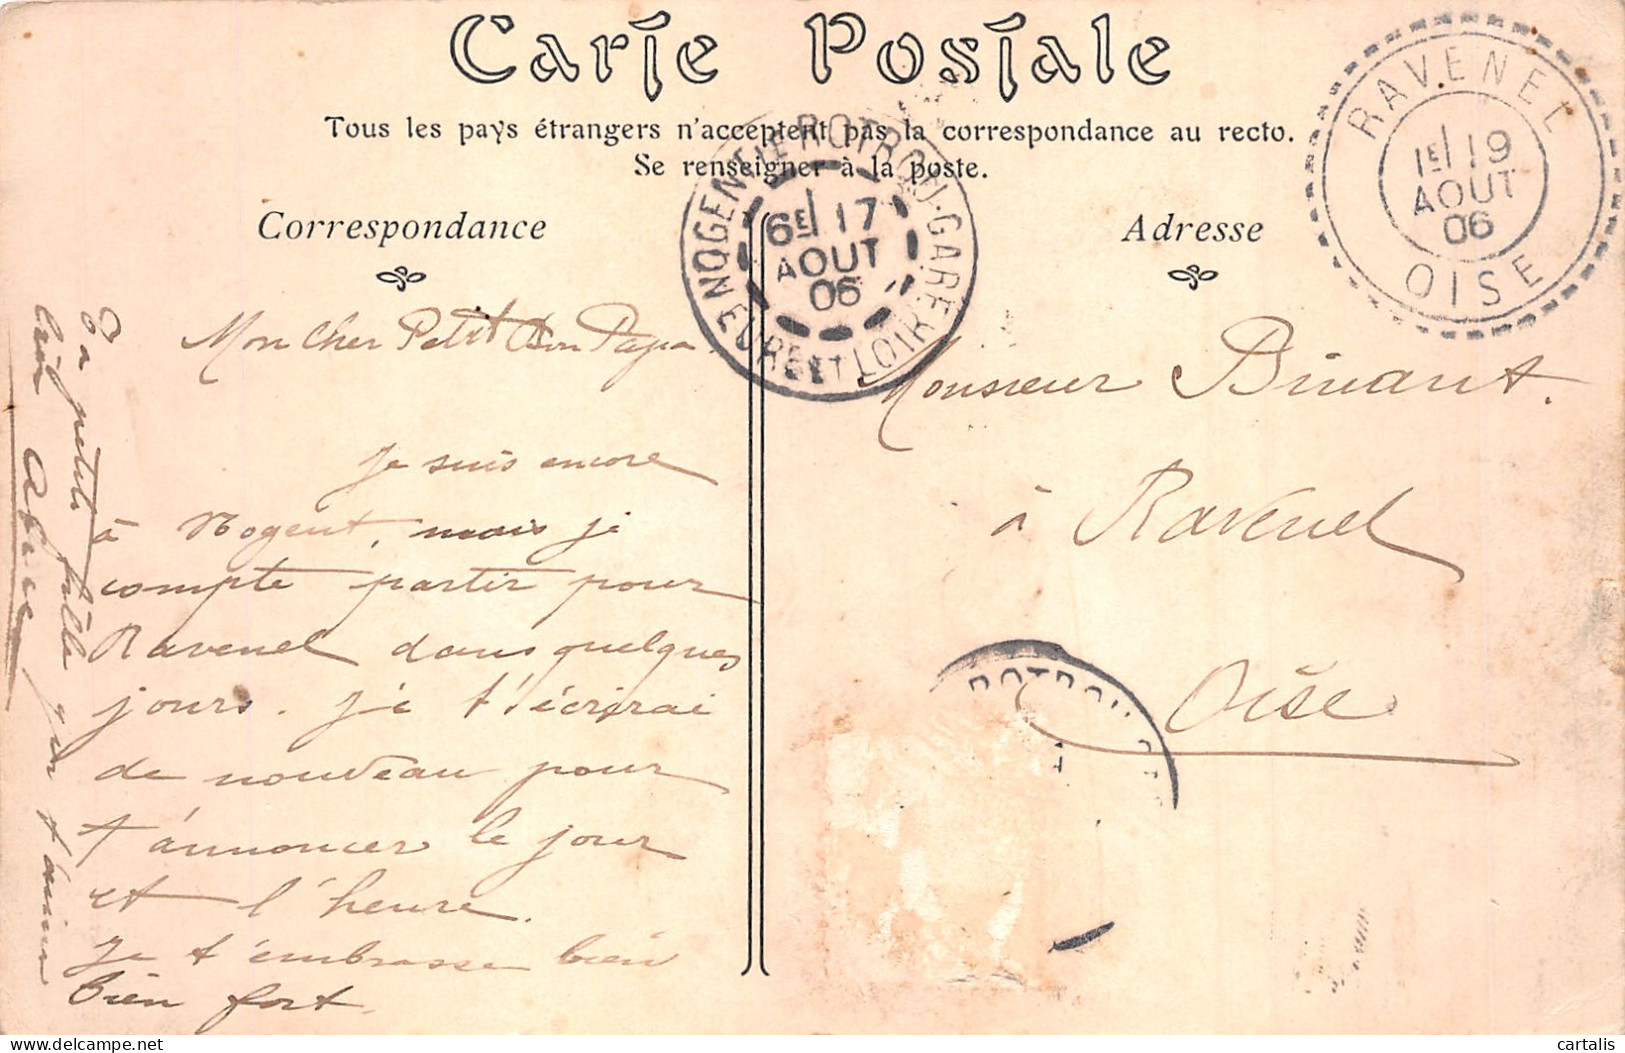 Carte Postale
Tous les pays étrangers n'acceptent pas la correspondance au recto.
Se renseigner à la poste.
Correspondance
Adresse
NOGENT-LE-ROTROU-GARE
6E 17
AOUT
06
EURE ET LOIR
RAVENEL
1E 19
AOUT
06
OISE
Mon cher Petit Bon Papa
je suis encore
à Nogent, mais je
compte partir pour
Ravenel dans quelques
jours. je t'écrirai
de nouveau pour
t'annoncer le jour
et l'heure.
Je t'embrasse bien
bien fort.
Ta petite fille qui t'aime
bien
Monsieur Binant.
à Ravenel
Oise
ROTROU
cartalis
delcampe.net